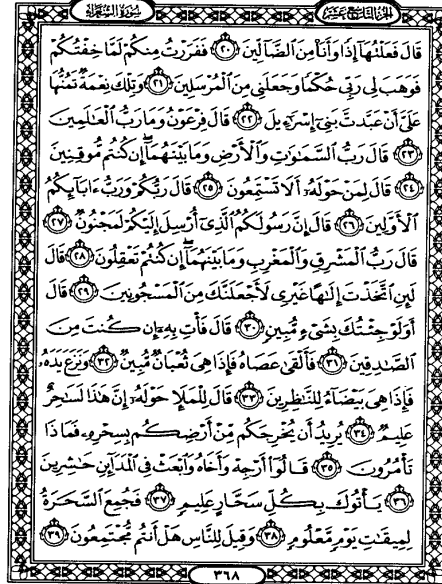 الجزء التاسع عشر سورة الشعراء
قَالَ فَعَلْتُهَآ إِذًا وَأَنَا۠ مِنَ ٱلضَّآلِّينَ ۝٢٠ فَفَرَرْتُ مِنكُمْ لَمَّا خِفْتُكُمْ
فَوَهَبَ لِى رَبِّى حُكْمًا وَجَعَلَنِى مِنَ ٱلْمُرْسَلِينَ ۝٢١ وَتِلْكَ نِعْمَةٌ تَمُنُّهَا
عَلَىَّ أَنْ عَبَّدتَّ بَنِىٓ إِسْرَٰٓءِيلَ ۝٢٢ قَالَ فِرْعَوْنُ وَمَا رَبُّ ٱلْعَٰلَمِينَ
۝٢٣ قَالَ رَبُّ ٱلسَّمَٰوَٰتِ وَٱلْأَرْضِ وَمَا بَيْنَهُمَآ إِن كُنتُم مُّوقِنِينَ
۝٢٤ قَالَ لِمَنْ حَوْلَهُۥٓ أَلَا تَسْتَمِعُونَ ۝٢٥ قَالَ رَبُّكُمْ وَرَبُّ ءَابَآئِكُمُ
ٱلْأَوَّلِينَ ۝٢٦ قَالَ إِنَّ رَسُولَكُمُ ٱلَّذِىٓ أُرْسِلَ إِلَيْكُمْ لَمَجْنُونٌ ۝٢٧
قَالَ رَبُّ ٱلْمَشْرِقِ وَٱلْمَغْرِبِ وَمَا بَيْنَهُمَآ إِن كُنتُمْ تَعْقِلُونَ ۝٢٨ قَالَ
لَئِنِ ٱتَّخَذْتَ إِلَٰهًا غَيْرِى لَأَجْعَلَنَّكَ مِنَ ٱلْمَسْجُونِينَ ۝٢٩ قَالَ
أَوَلَوْ جِئْتُكَ بِشَىْءٍ مُّبِينٍ ۝٣٠ قَالَ فَأْتِ بِهِۦٓ إِن كُنتَ مِنَ
ٱلصَّٰدِقِينَ ۝٣١ فَأَلْقَىٰ عَصَاهُ فَإِذَا هِىَ ثُعْبَانٌ مُّبِينٌ ۝٣٢ وَنَزَعَ يَدَهُۥ
فَإِذَا هِىَ بَيْضَآءُ لِلنَّٰظِرِينَ ۝٣٣ قَالَ لِلْمَلَإِ حَوْلَهُۥٓ إِنَّ هَٰذَا لَسَٰحِرٌ
عَلِيمٌ ۝٣٤ يُرِيدُ أَن يُخْرِجَكُم مِّنْ أَرْضِكُم بِسِحْرِهِۦ فَمَاذَا
تَأْمُرُونَ ۝٣٥ قَالُوٓا۟ أَرْجِهْ وَأَخَاهُ وَٱبْعَثْ فِى ٱلْمَدَآئِنِ حَٰشِرِينَ
۝٣٦ يَأْتُوكَ بِكُلِّ سَحَّارٍ عَلِيمٍ ۝٣٧ فَجُمِعَ ٱلسَّحَرَةُ
لِمِيقَٰتِ يَوْمٍ مَّعْلُومٍ ۝٣٨ وَقِيلَ لِلنَّاسِ هَلْ أَنتُم مُّجْتَمِعُونَ ۝٣٩
٣٦٨